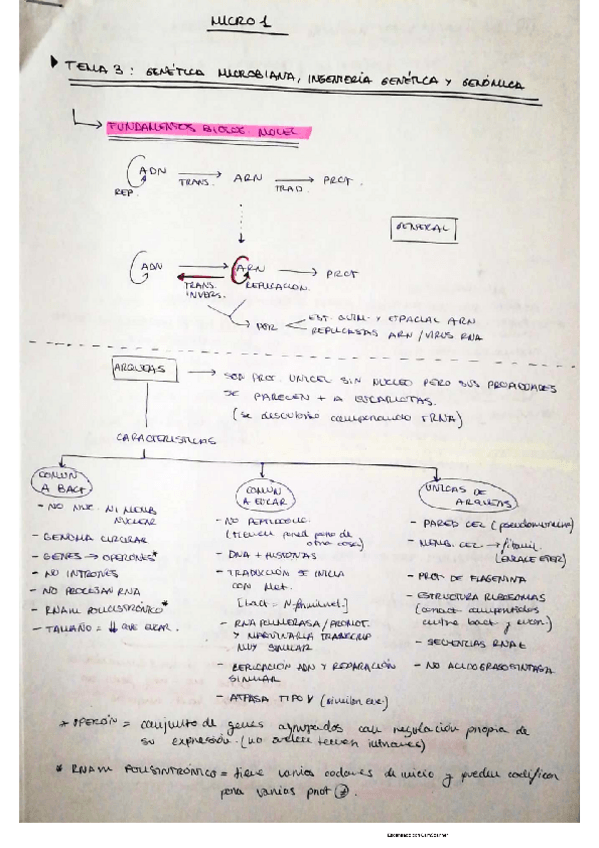 MICRO 1
TEMA 3: GENÉTICA MICROBIANA, INGENIERÍA GENÉTICA Y GENÓMICA
FUNDAMENTOS BIOLOG. MOLEC
ADN → ARN → PROT.
REP. TRANS. TRAD.
GENERAL
ADN → ARN → PROT
TRANS. INVERS. REPLICACION.
POR
EST. QUIM. Y ESPACIAL ARN
REPLICASAS ARN / VIRUS RNA
ARQUEAS → SON PROT. UNICEL SIN NUCLEO PERO SUS PROPIEDADES
SE PARECEN + A EUCARIOTAS.
(se descubrió comparando rRNA)
CARACTERISTICAS
COMUN
A BACT
- NO NUC. NI MEMB
NUCLEAR
- GENOMA CIRCULAR
- GENES → OPERONES*
- NO INTRONES
- NO PROCESAN RNA
- RNAm POLICISTRÓNICO*
- TAMAÑO = ↓ QUE EUCAR.
COMUN
A EUCAR
- NO PEPTIDOGLIC.
(tienen pared pero de
otra cosa)
- DNA + HISTONAS
- TRADUCCIÓN SE INICIA
CON Met.
[bact = N-formilmet.]
- RNA POLIMERASA / PROMOT.
Y MAQUINARIA TRANSCRIP
MUY SIMILAR
- REPLICACIÓN ADN Y REPARACIÓN
SIMILAR
- ATPASA TIPO V (similar euc.)
UNICAS DE
ARQUEAS
- PARED CEL (pseudomureina)
- MEMB. CEL → fitanil.
(ENLACE ETER)
- PROT. DE FLAGELINA
- ESTRUCTURA RIBOSOMAS
entre bact y eucar.)
- SECUENCIAS RNAt
- NO ACIDO GRASO SINTASA
* OPERÓN = conjunto de genes agrupados con regulación propia de
su expresión. (no suelen tener intrones)
* RNAm POLISINTRÓNICO = tiene varios codones de inicio y pueden codificar
para varias prot
Escaneado con CamScanner